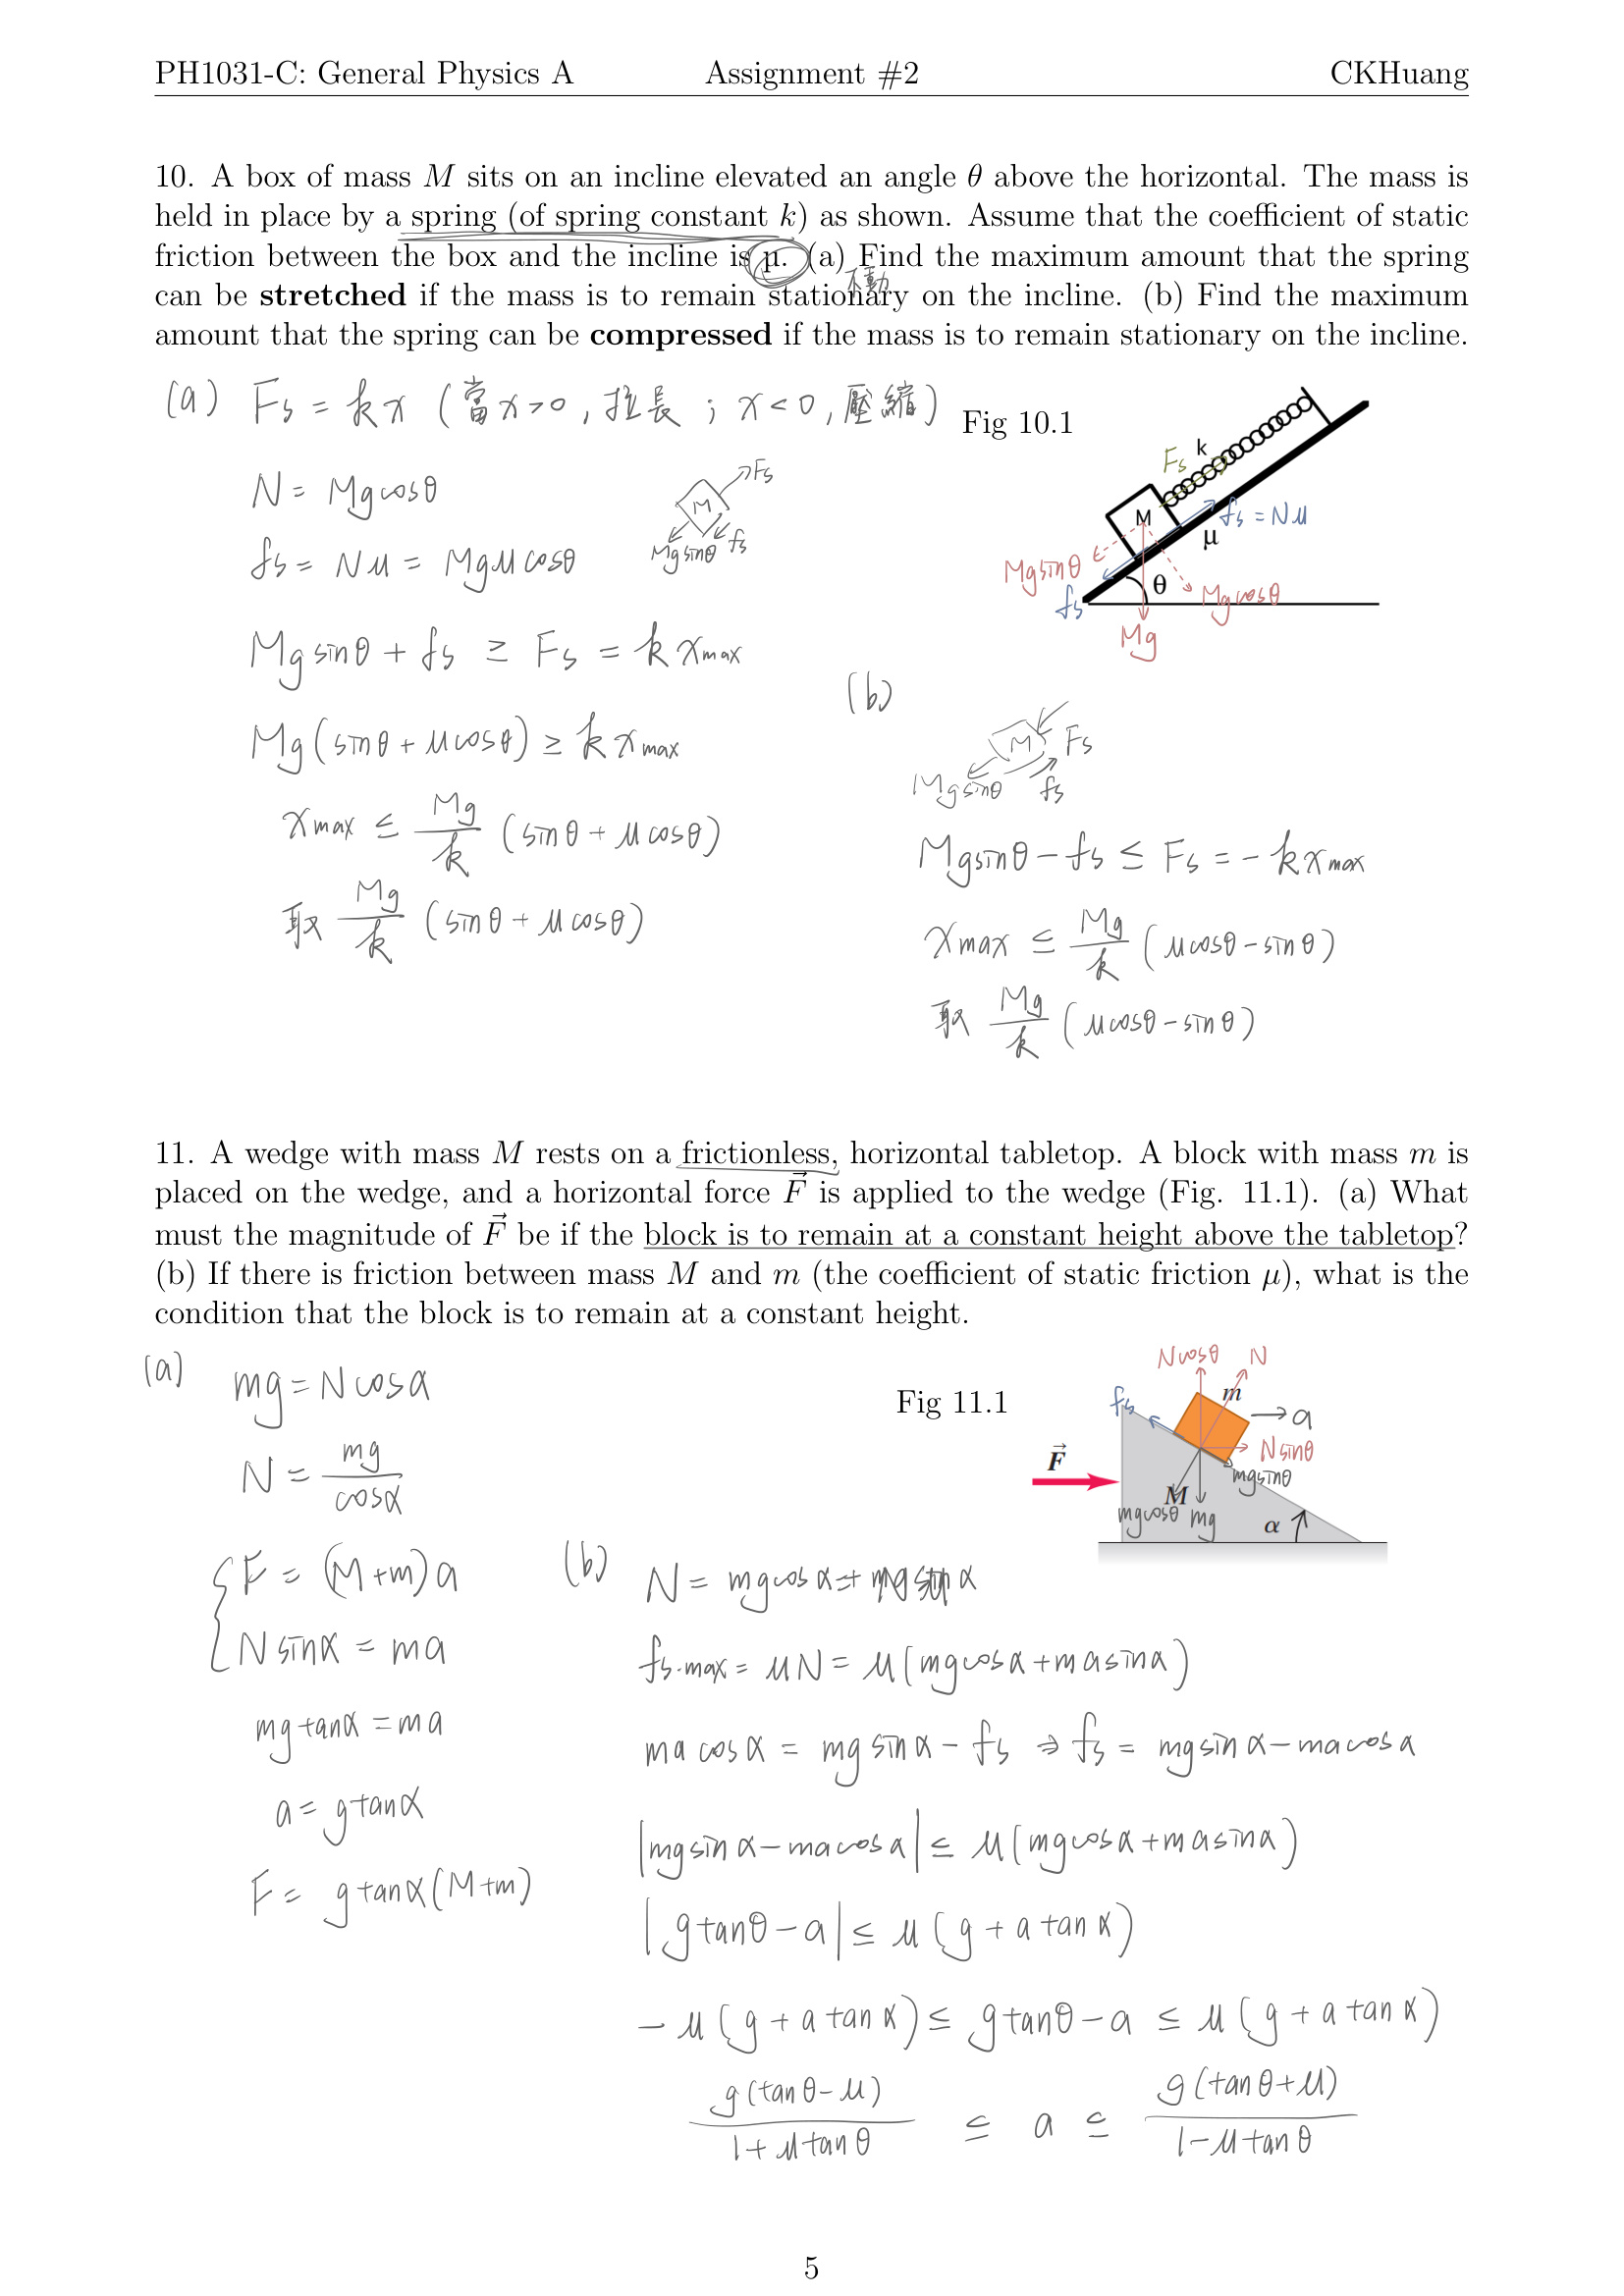 PH1031-C: General Physics A Assignment #2 CKHuang
10. A box of mass M sits on an incline elevated an angle θ above the horizontal. The mass is
held in place by a spring (of spring constant k) as shown. Assume that the coefficient of static
friction between the box and the incline is μ. (a) Find the maximum amount that the spring
不動
can be stretched if the mass is to remain stationary on the incline. (b) Find the maximum
amount that the spring can be compressed if the mass is to remain stationary on the incline.
(a) Fs = kx (當x>0,拉長;x<0,壓縮)
N = Mgcosθ
fs = Nμ = Mgμcosθ
M Fs
Mgsinθ fs
Mgsinθ + fs ≥ Fs = kxmax
Mg(sinθ + μcosθ) ≥ kxmax
xmax ≤ Mg/k (sinθ + μcosθ)
取 Mg/k (sinθ + μcosθ)
Fig 10.1
k
Fs
M
fs = Nμ
μ
Mgsinθ
θ
fs
Mgcosθ
Mg
(b)
M Fs
Mgsinθ fs
Mgsinθ - fs ≤ Fs = -kxmax
xmax ≤ Mg/k (μcosθ - sinθ)
取 Mg/k (μcosθ - sinθ)
11. A wedge with mass M rests on a frictionless, horizontal tabletop. A block with mass m is
placed on the wedge, and a horizontal force F⃗ is applied to the wedge (Fig. 11.1). (a) What
must the magnitude of F⃗ be if the block is to remain at a constant height above the tabletop?
(b) If there is friction between mass M and m (the coefficient of static friction μ), what is the
condition that the block is to remain at a constant height.
(a) mg = Ncosα
N = mg/cosα
F = (M+m)a
Nsinα = ma
mgtanα = ma
a = gtanα
F = gtanα(M+m)
Fig 11.1
Ncosθ N
fs
m
a
Nsinθ
F⃗
mgsinθ
M
mgcosθ mg
α
(b) N = mgcosα + mgsinα
fs.max = μN = μ(mgcosα + masinα)
macosα = mgsinα - fs ⇒ fs = mgsinα - macosα
|mgsinα - macosα| ≤ μ(mgcosα + masinα)
|gtanθ - a| ≤ μ(g + atanα)
-μ(g + atanα) ≤ gtanθ - a ≤ μ(g + atanα)
g(tanθ - μ)/1 + μtanθ ≤ a ≤ g(tanθ + μ)/1 - μtanθ
5